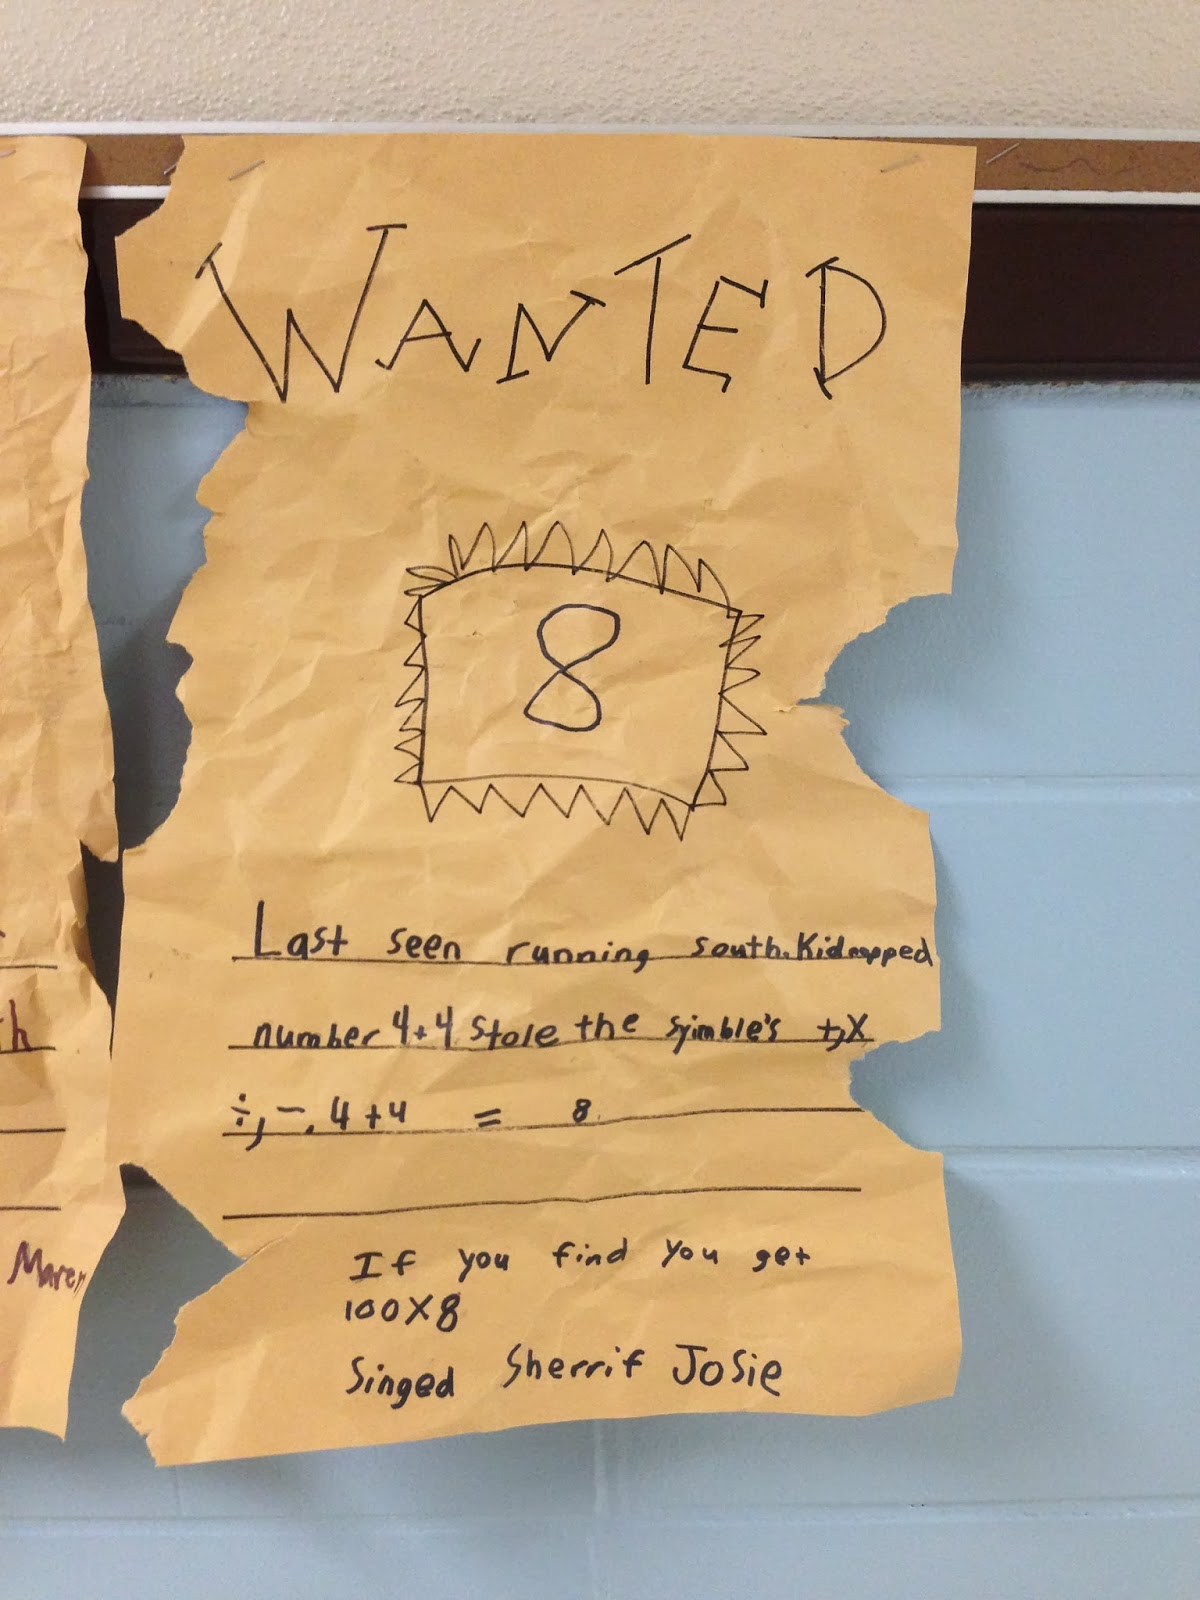 WANTED
8
Last seen running south. Kidnapped
number 4+4 Stole the syimble's +, X
÷, -. 4+4 = 8.
If you find you get
100X8
Singed Sherrif Josie
Maren